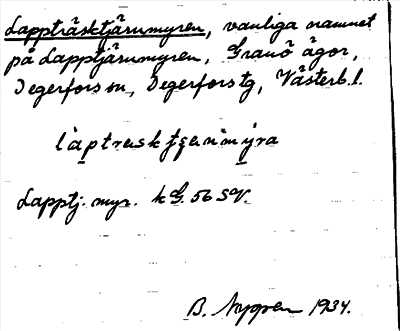 Lappträsktjärnmyren, vanliga namnet
på Lapptjärnmyren, Granö ägor,
Degerfors sn, Degerfors tg, Västerb. l.
làptresktjæ̣rnmy̆ra
Lapptj. myr. kG. 56 SV.
B. Nygren 1934.